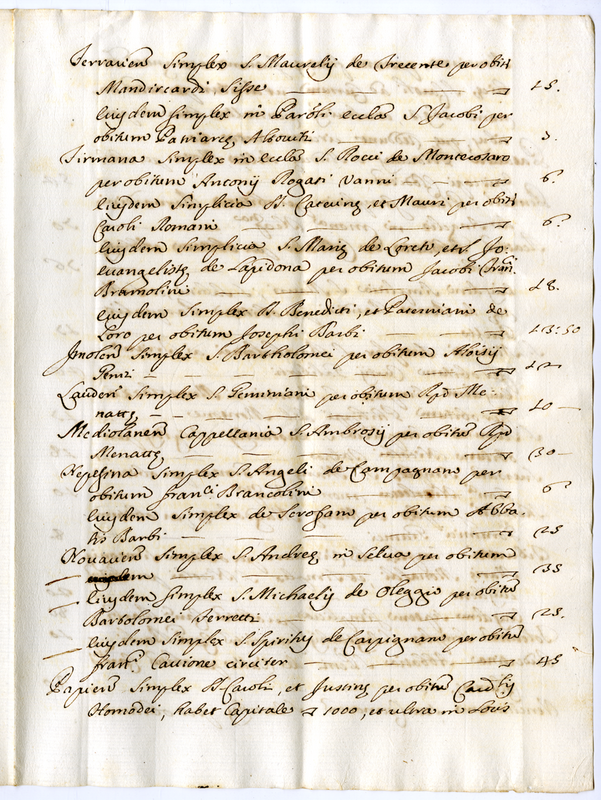 Ferrarien̄ Simplex S. Maurelij de Trecente per obit̄
Mandircardi Sisse 15.
Eiusdem Simplex in Paroli eccłᵃ S. Jacobi per
obitum Patriarcę 3.
Firmana Simplex in eccłᵃ S. Rocci de Montecosaro
per obitum Antonij Rogati Vanni 6.
Eiusdem Simplicia SS. et Mauri per obit̄
Caroli Romani 6.
Eiusdem Simplicia S. Marię de Loreto, et S. Jo:
euangelistę de Lapidona per obitum Jacobi Franci
Bramolini 18.
Eiusdem Simplex SS. Benedicti, et Paterniani de
Loro per obitum Josephi Barbi 13:50
Imolen̄ Simplex S. Bartholomei per obitum Aloisij
Penzi 12
Lauden̄ Simplex S. Geminiani per obitum Apd Me-
nattę 10
Mediolanen̄ Cappellania S. Ambrosij per obitū Apd
Menattę 30
Nepesina Simplex S. Angeli de Campagnano per
obitum Franci Brancolini 6
Eiusdem Simplex de Scrofano per obitum Abba-
tis Barbi 25
Nouarien̄ Simplex S. Andreę in Selua per obitum
eiusdem 35
Eiusdem Simplex S. Michaelis de Oleggio per obitū
Bartolomei Ferretti 25.
Eiusdem Simplex S. Spiritus de Carpignano per obitū
Franci Cauione circiter 45
Papien̄ Simplex SS. Caroli, et Justinę per obitū Cardlis
Homodei, habet Capitale 1000, et ultra in Locis